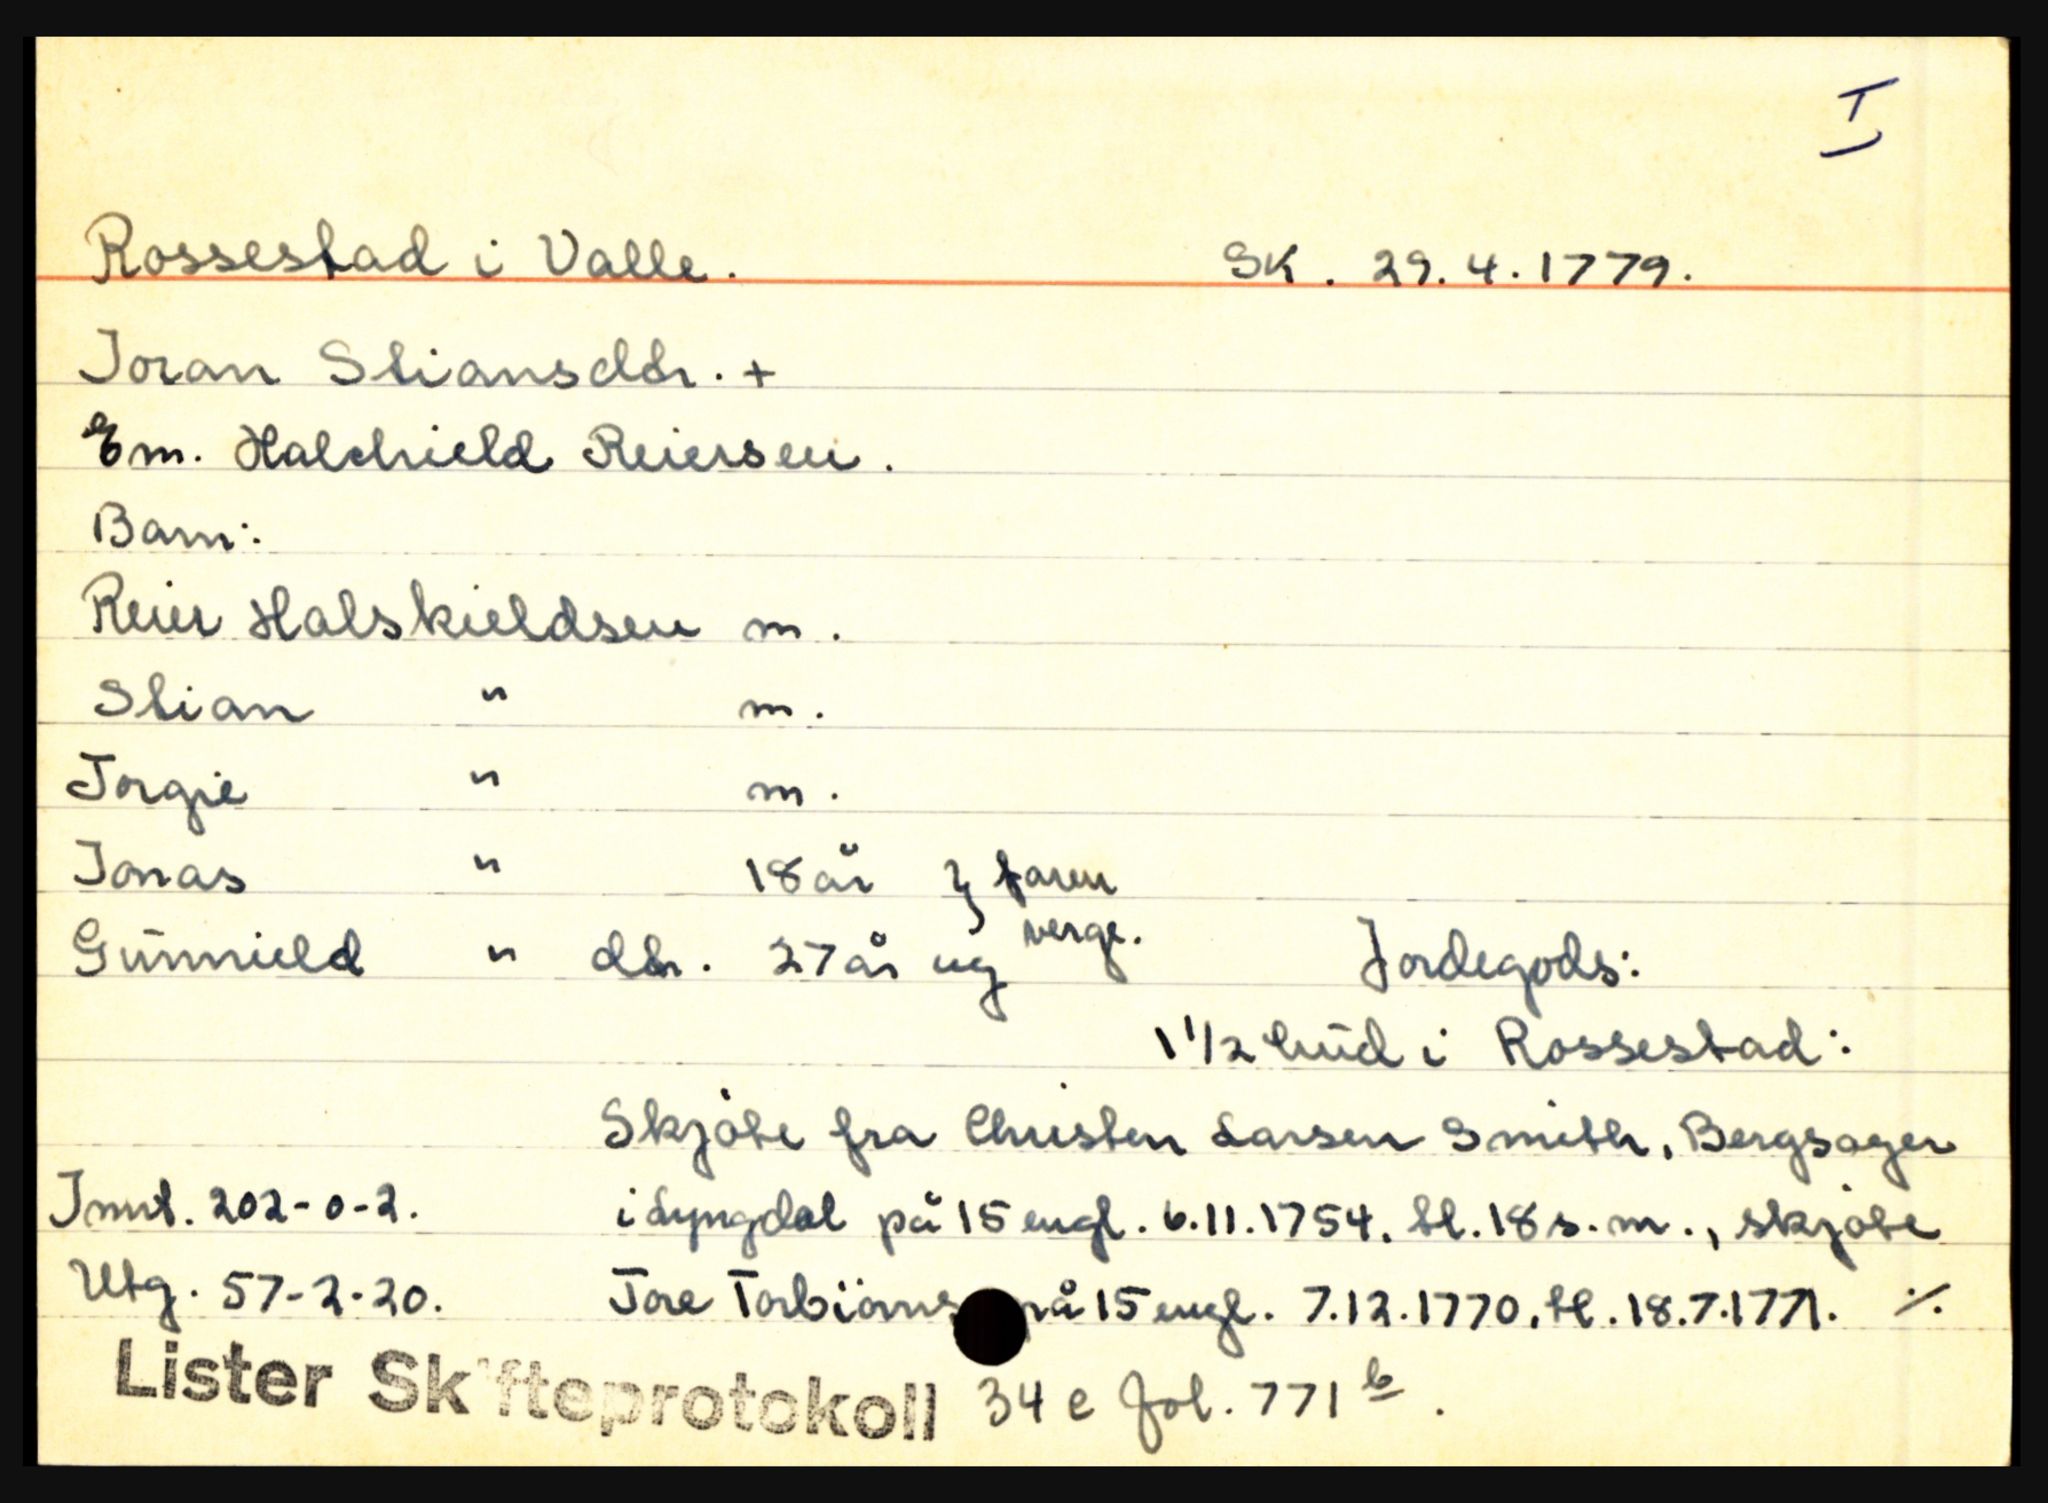 I
Rossestad i Valle. SK. 29.4.1779.
Joran Stiansdtr. +
Em. Halchield Reiersen.
Barn:
Reier Halskieldsen m.
Stian " m.
Torgie " m.
Jonas " 18 år } faren
verge.
Gunnield " dtr. 27 år ug Jordegods:
1 1/2 hud i Rossestad:
Skjöte fra Christen Larsen Smith, Bergsager
Innt. 202-0-2. i Lyngdal på 15 engl. 6.11.1754, tl. 18 s.m., skjöte
Utg. 57-2-20. Tore Torbiörns på 15 engl. 7.12.1770, tl. 18.7.1771. ⁒
Lister Skifteprotokoll 34 e fol. 771 b.